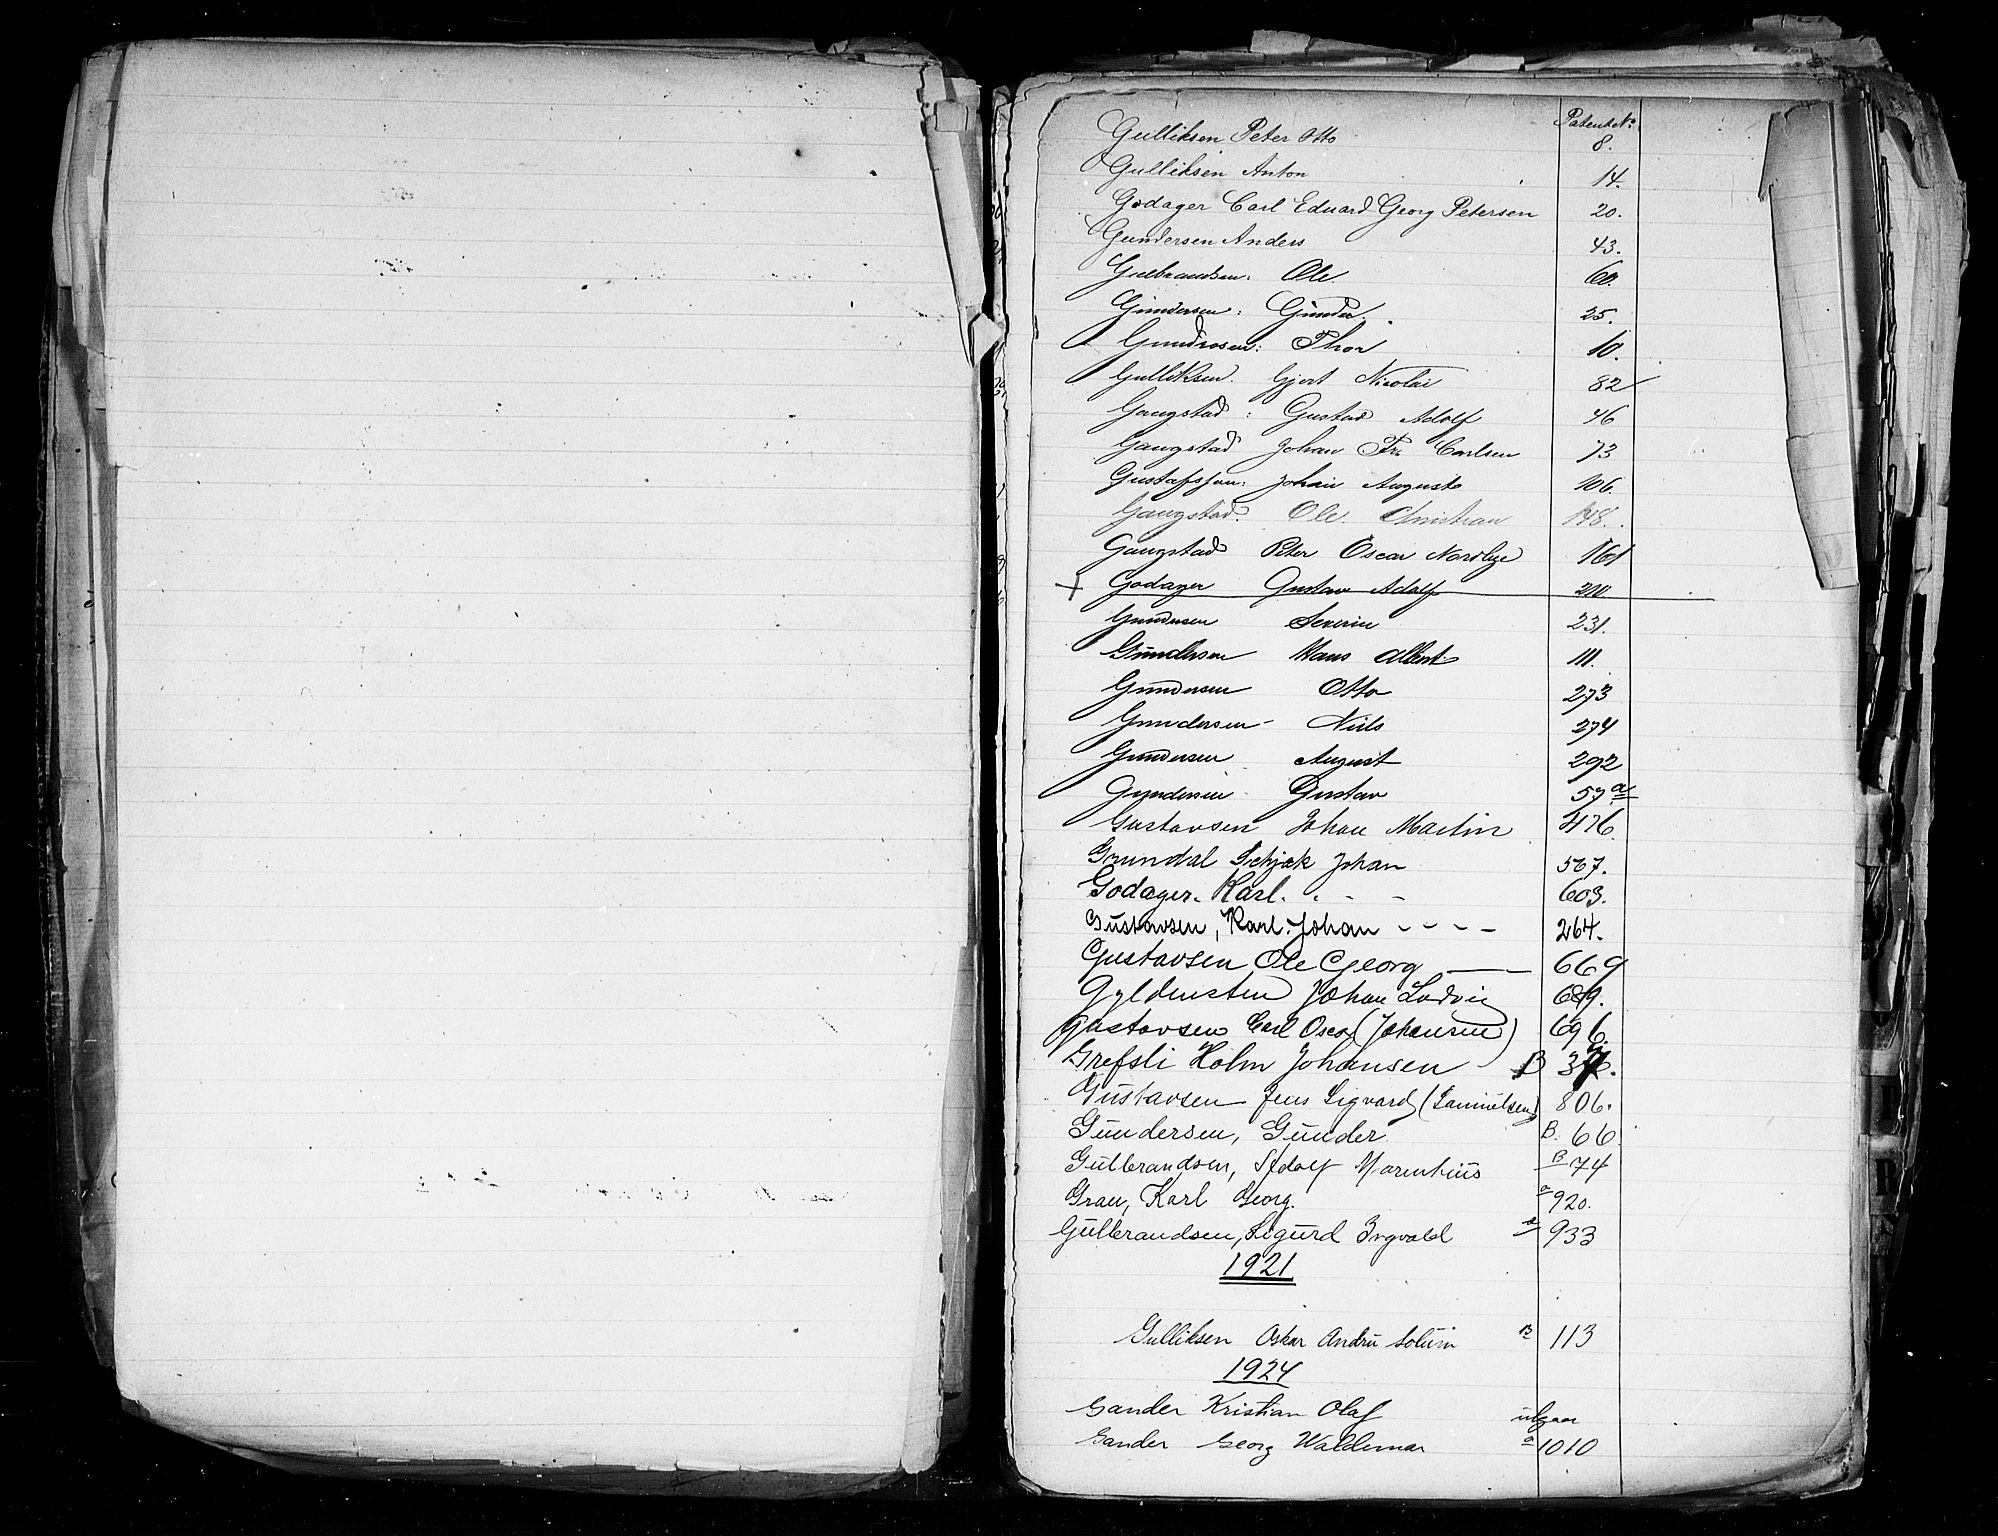 Patent No
Gulliksen Peter Otto 8.
Gulliksen Anton 14.
Godager Carl Eduard Georg Petersen 20.
Gundersen Anders 43.
Gulbrandsen: Ole. 60.
Gundersen: Gunder. 25.
Gundersen: Thor 10.
Gulliksen. Gjert Nicolai 82
Gangstad: Gustav Adolf 46
Gangstad Johan Fr. Carlsen 73
Gustafsson: Johan August 106.
Gangstad. Ole Christian 148.
Gangstad Peter Oscar 161
+ Godager Gustav Adolf 210
Gundersen Severin 231.
Gundersen Hans Albert 111.
Gundersen Otto 273
Gundersen - Nils 274
Gundersen August 292
Gundersen Gustav 57 a
Gustavsen Johan Martin 476.
Grundal Johan 567.
Godager. Karl. - - - 603.
Gustavsen, Karl. Johan - - - - 264.
Gustavsen Ole Georg — 669
Gyldensten Johan Ludvig 689.
Gustavsen Carl Oscar (Johansen) 696.
Grefsli Holm Johansen B
Gustavsen Jens Sigvard (Samuelsen) 806.
Gundersen, Gunder. B. 66
Gulbrandsen, Marentius B 74
Grau, Karl Georg. a 920.
Gulbrandsen, Sigurd Ingvald a 933
1921
Gulliksen Oskar Andru Solum B 113
1924
Gander Kristian Olaf utgaar
Gander Georg Waldemar a 1010